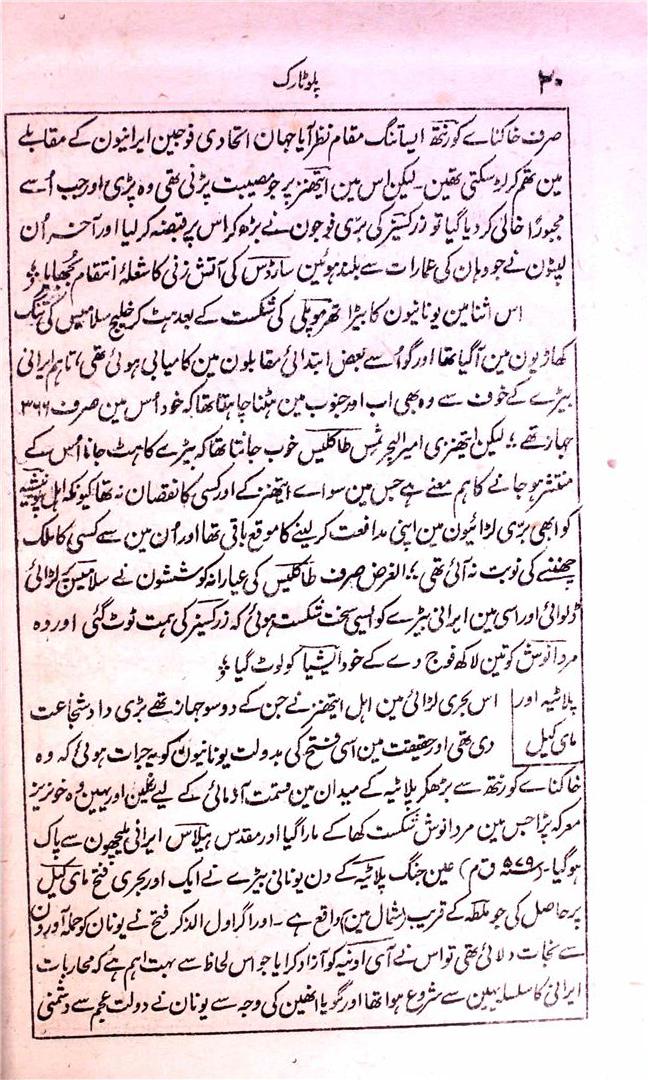 ۲۰
پلوٹارک
صرف خاکناے کورنتھ ایسا تنگ مقام نظر آیا جہان اتحادی فوجین ایرانیون کے مقابلے
مین تھم کر لڑ سکتی تھین۔ لیکن اس مین ایتھنز پر جو مصیبت پڑنی تھی وہ پڑی اور جب اُسے
مجبورًا خالی کر دیا گیا تو زرکسیز کی بری فوجون نے بڑھ کر اس پر قبضہ کر لیا اور آخر اُن
لپٹون نے جو وہان کی عمارات سے بلند ہوئین سارڈس کی آتش زنی کا شعلۂ انتقام بجھایا ؛
اس اثنا مین یونانیون کا بیڑا تھرموپلی کی شکست کے بعد ہٹ کر خلیج سلامیس کی تنگ
کھاڑیون مین آگیا تھا اور گو اُسے بعض ابتدائی مقابلون مین کامیابی ہوئی تھی، تاہم ایرانی
بیڑے کے خوف سے وہ بھی اب اور جنوب مین ہٹنا چاہتا تھا کہ خود اُس مین صرف ۳۶۶
جہاز تھے ؛ لیکن ایتھنزی امیر البحر ثمس طاکلیس خوب جانتا تھا کہ بیڑے کا ہٹ جانا اُس کے
منتشر ہو جانے کا ہم معنے ہے جس مین سواے ایتھنز کے اور کسی کا نقصان نہ تھا کیونکہ اہل
کو ابھی بری لڑائیون مین اپنی مدافعت کر لینے کا موقع باقی تھا اور اُن مین سے کسی کا ملک
چھننے کی نوبت نہ آئی تھی ؛ الغرض صرف طاکلیس کی عیارانہ کوششون نے سلامیس کی لڑائی
لڑوائی اور اسی مین ایرانی بیڑے کو ایسی سخت شکست ہوئی کہ زرکسیز کی ہمت ٹوٹ گئی اور وہ
مردانوش کو تین لاکھ فوج دے کے خود ایشیا کو لوٹ گیا ؛
پلاٹیہ اور
مای کیل
اس بحری لڑائی مین اہل ایتھنز نے جن کے دو سو جہاز تھے بڑی داد شجاعت
دی تھی اور حقیقت مین اسی فتح کی بدولت یونانیون کو یہ جرات ہوئی کہ وہ
خاکناے کورنتھ سے بڑھ کر پلاٹیہ کے میدان مین قسمت آزمائی کے لیے نکلین اور یہین وہ خونریز
معرکہ پڑا جس مین مردانوش شکست کھا کے مارا گیا اور مقدس ہیلاس ایرانی ملیچھون سے پاک
ہو گیا۔ (سنہ ۴۷۹ ق م) عین جنگ پلاٹیہ کے دن یونانی بیڑے نے ایک اور بحری فتح مای کیل
پر حاصل کی جو ملطہ کے قریب (شمال مین) واقع ہے۔ اور اگر اول الذکر فتح نے یونان کو حملہ آورون
سے نجات دلائی تھی تو اس نے آی اونیہ کو آزاد کرایا جو اس لحاظ سے بہت اہم ہے کہ محاربات
ایرانی کا سلسلہ یہین سے شروع ہوا تھا اور گویا انھین کی وجہ سے یونان نے دولت عجم سے دشمنی